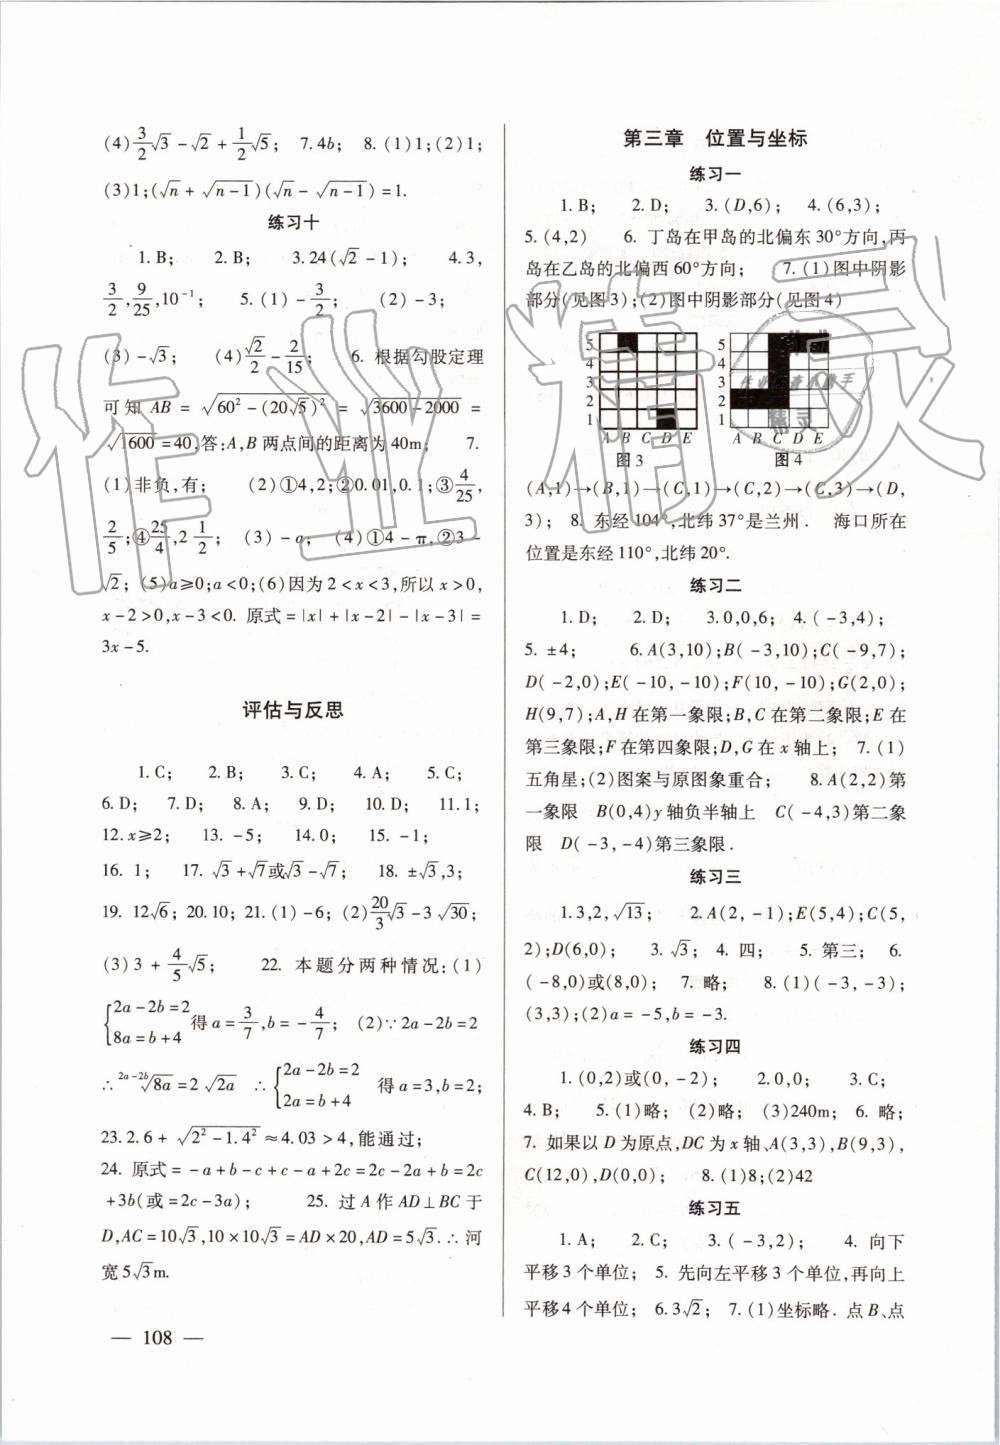 (4)3/2√3-√2+1/2√5; 7.4b; 8.(1)1;(2)1;
(3)1;(√n+√(n-1))(√n-√(n-1))=1.
练习十
1.B; 2.B; 3.24(√2-1); 4.3,
3/2,9/25,10⁻¹; 5.(1)-3/2; (2)-3;
(3)-√3; (4)√2/2-2/15; 6. 根据勾股定理
可知 AB=√(60²-(20√5)²)=√(3600-2000)=
√1600=40,答:A,B 两点间的距离为40m; 7.
(1)非负,有; (2)①4,2;②0.01,0.1;③4/25,
2/5;④25/4,2 1/2; (3)-a; (4)①4-π,②3-
√2; (5)a≥0;a<0;(6)因为2<x<3,所以x>0,
x-2>0,x-3<0. 原式=|x|+|x-2|-|x-3|=
3x-5.
评估与反思
1.C; 2.B; 3.C; 4.A; 5.C;
6.D; 7.D; 8.A; 9.D; 10.D; 11.1;
12.x≥2; 13. -5; 14.0; 15. -1;
16. 1; 17. √3+√7或√3-√7; 18. ±√3,3;
19. 12√6; 20.10; 21.(1)-6; (2)20/3√3-3√30;
(3)3+4/5√5; 22. 本题分两种情况:(1)
{2a-2b=2
8a=b+4 得a=3/7,b=-4/7; (2)∵2a-2b=2
∴ ²ᵃ⁻²ᵇ√8a=2√2a ∴{2a-2b=2
2a=b+4 得a=3,b=2;
23.2.6+√(2²-1.4²)≈4.03>4,能通过;
24. 原式=-a+b-c+c-a+2c=2c-2a+b=2c
+3b(或=2c-3a); 25. 过A作AD⊥BC于
D,AC=10√3,10×10√3=AD×20,AD=5√3.∴河
宽5√3m.
— 108 —
第三章 位置与坐标
练习一
1.B; 2.D; 3.(D,6); 4.(6,3);
5.(4,2) 6. 丁岛在甲岛的北偏东30°方向,丙
岛在乙岛的北偏西60°方向; 7.(1)图中阴影
部分(见图3);(2)图中阴影部分(见图4)
5
4
3
2
1
A B C D E
图3
5
4
3
2
1
A B C D E
图4
(A,1)→(B,1)→(C,1)→(C,2)→(C,3)→(D,
3); 8. 东经104°,北纬37°是兰州. 海口所在
位置是东经110°,北纬20°.
练习二
1.D; 2.D; 3.0,0,6; 4.(-3,4);
5. ±4; 6.A(3,10);B(-3,10);C(-9,7);
D(-2,0);E(-10,-10);F(10,-10);G(2,0);
H(9,7);A,H在第一象限;B,C在第二象限;E在
第三象限;F在第四象限;D,G在x轴上; 7.(1)
五角星;(2)图案与原图象重合; 8.A(2,2)第
一象限 B(0,4)y轴负半轴上 C(-4,3)第二象
限 D(-3,-4)第三象限.
练习三
1.3,2,√13; 2.A(2,-1);E(5,4);C(5,
2);D(6,0); 3.√3; 4. 四; 5. 第三; 6.
(-8,0)或(8,0); 7. 略; 8.(1)(-3,-3);
(3,3);(2)a=-5,b=-3.
练习四
1.(0,2)或(0,-2); 2.0,0; 3.C;
4.B; 5.(1)略; (2)略; (3)240m; 6. 略;
7. 如果以D为原点,DC为x轴、A(3,3),B(9,3),
C(12,0),D(0,0); 8.(1)8;(2)42
练习五
1.A; 2.C; 3.(-3,2); 4. 向下
平移3个单位; 5. 先向左平移3个单位,再向上
平移4个单位; 6.3√2; 7.(1)坐标略. 点B、点
作业精灵